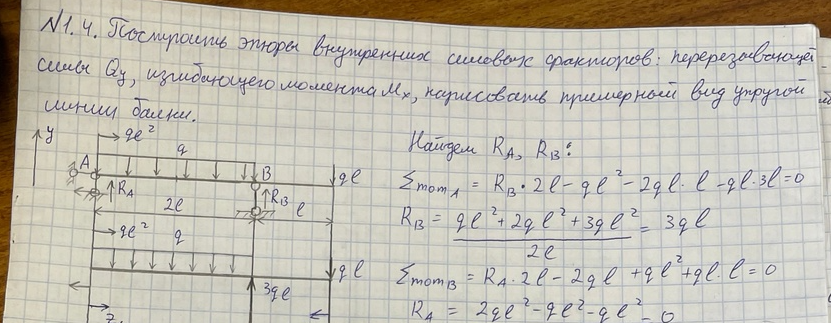 №1.4. Построить эпюры внутренних силовых факторов: перерезывающей
силы Qy, изгибающего момента Mx, нарисовать примерный вид упругой
линии балки.
y
ql²
q
A
B
ql
RA
RB
2l
l
ql²
q
ql
3ql
z
Найдем RA, RB:
ΣmomA = RB·2l - ql² - 2ql·l - ql·3l = 0
RB = (ql² + 2ql² + 3ql²)/2l = 3ql
ΣmomB = RA·2l - 2ql + ql² + ql·l = 0
RA = 2ql² - ql² - ql² = 0